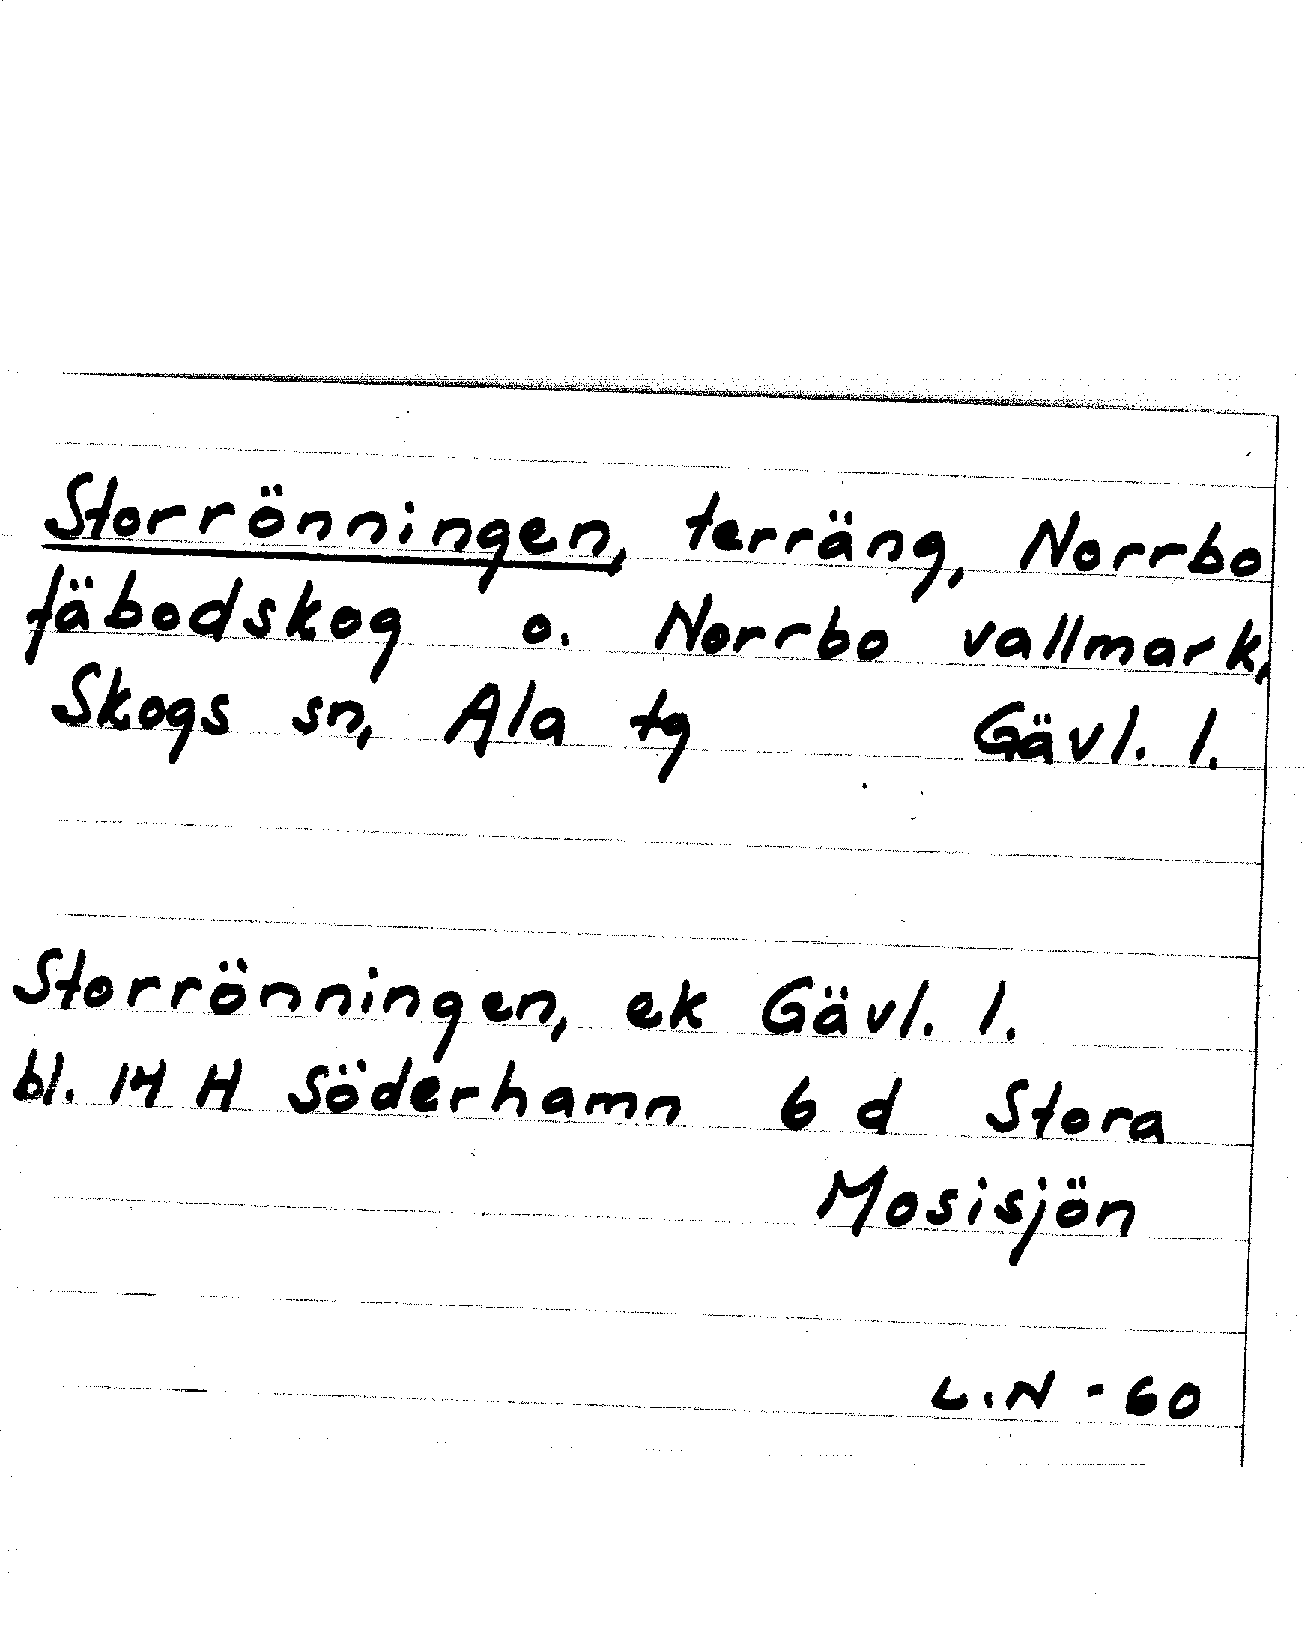 Storrönningen, terräng, Norrbo
fäbodskog o. Norrbo vallmark,
Skogs sn, Ala tg Gävl. l.
Storrönningen, ek Gävl. l.
bl. 14 H Söderhamn 6 d Stora
Mosisjön
L.N - 60